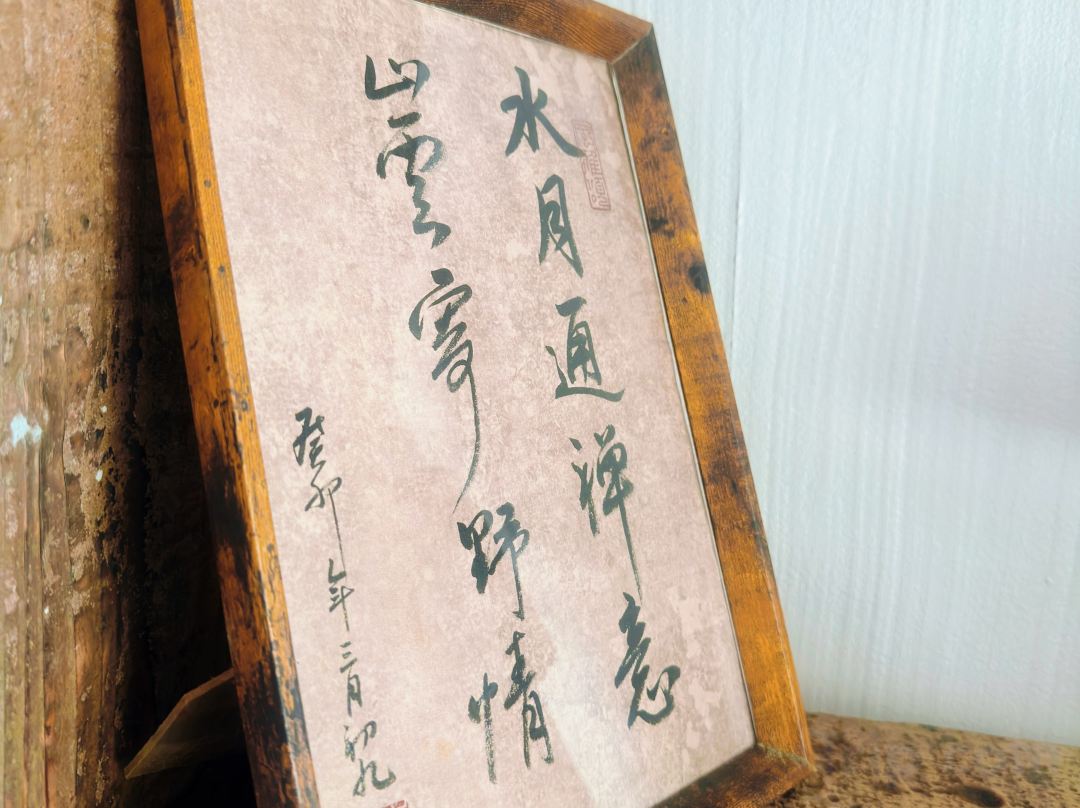 水月通禅意
山雲寄野情
癸卯年三月初九